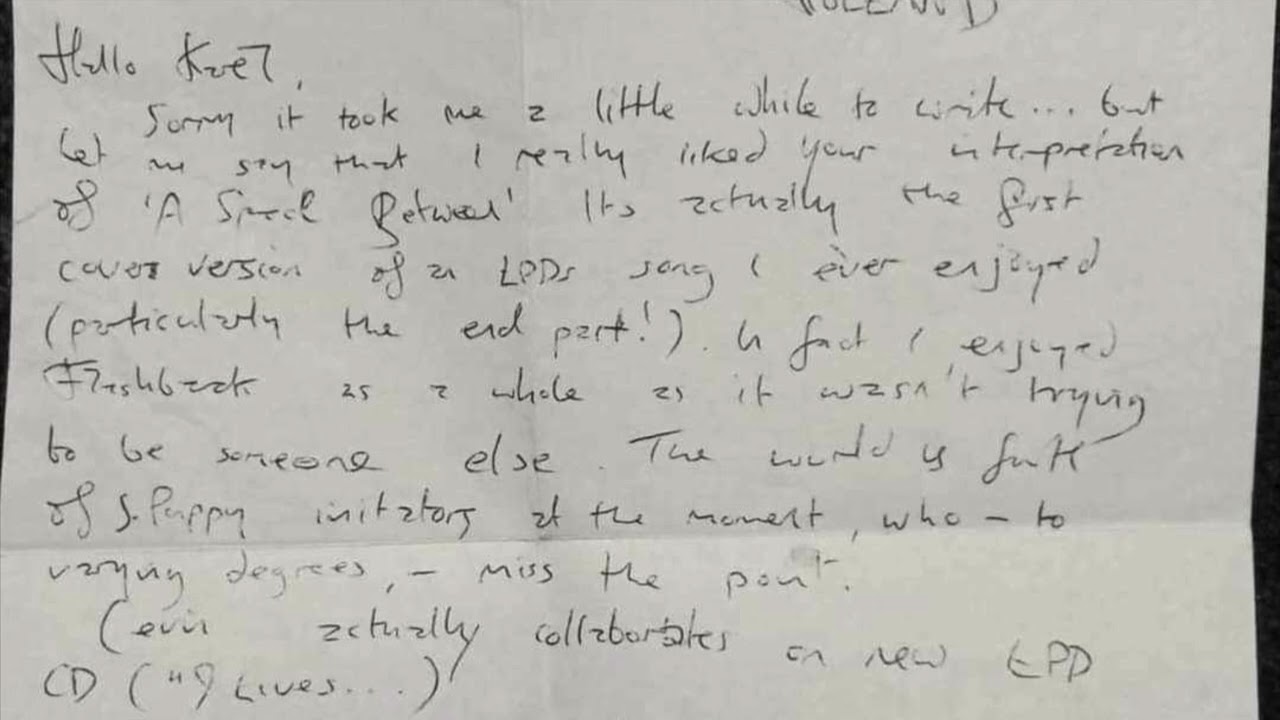 HOLLAND
Hello
Sorry it took me a little while to write... but
let me say that I really liked your interpretation
of 'A Space Between' Its actually the first
cover version of an LPDs song I ever enjoyed
(particularly the end part!). In fact I enjoyed
Flashback as a whole as it wasn't trying
to be someone else. The world is full
of S. Puppy imitators at the moment, who – to
varying degrees, – miss the point.
Cevin actually collaborates on new LPD
CD ("9 Lives...)